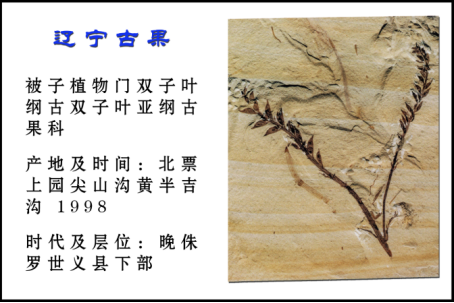 辽宁古果
被子植物门双子叶
纲古双子叶亚纲古
果科
产地及时间：北票
上园尖山沟黄半吉
沟 1998
时代及层位：晚侏
罗世义县下部